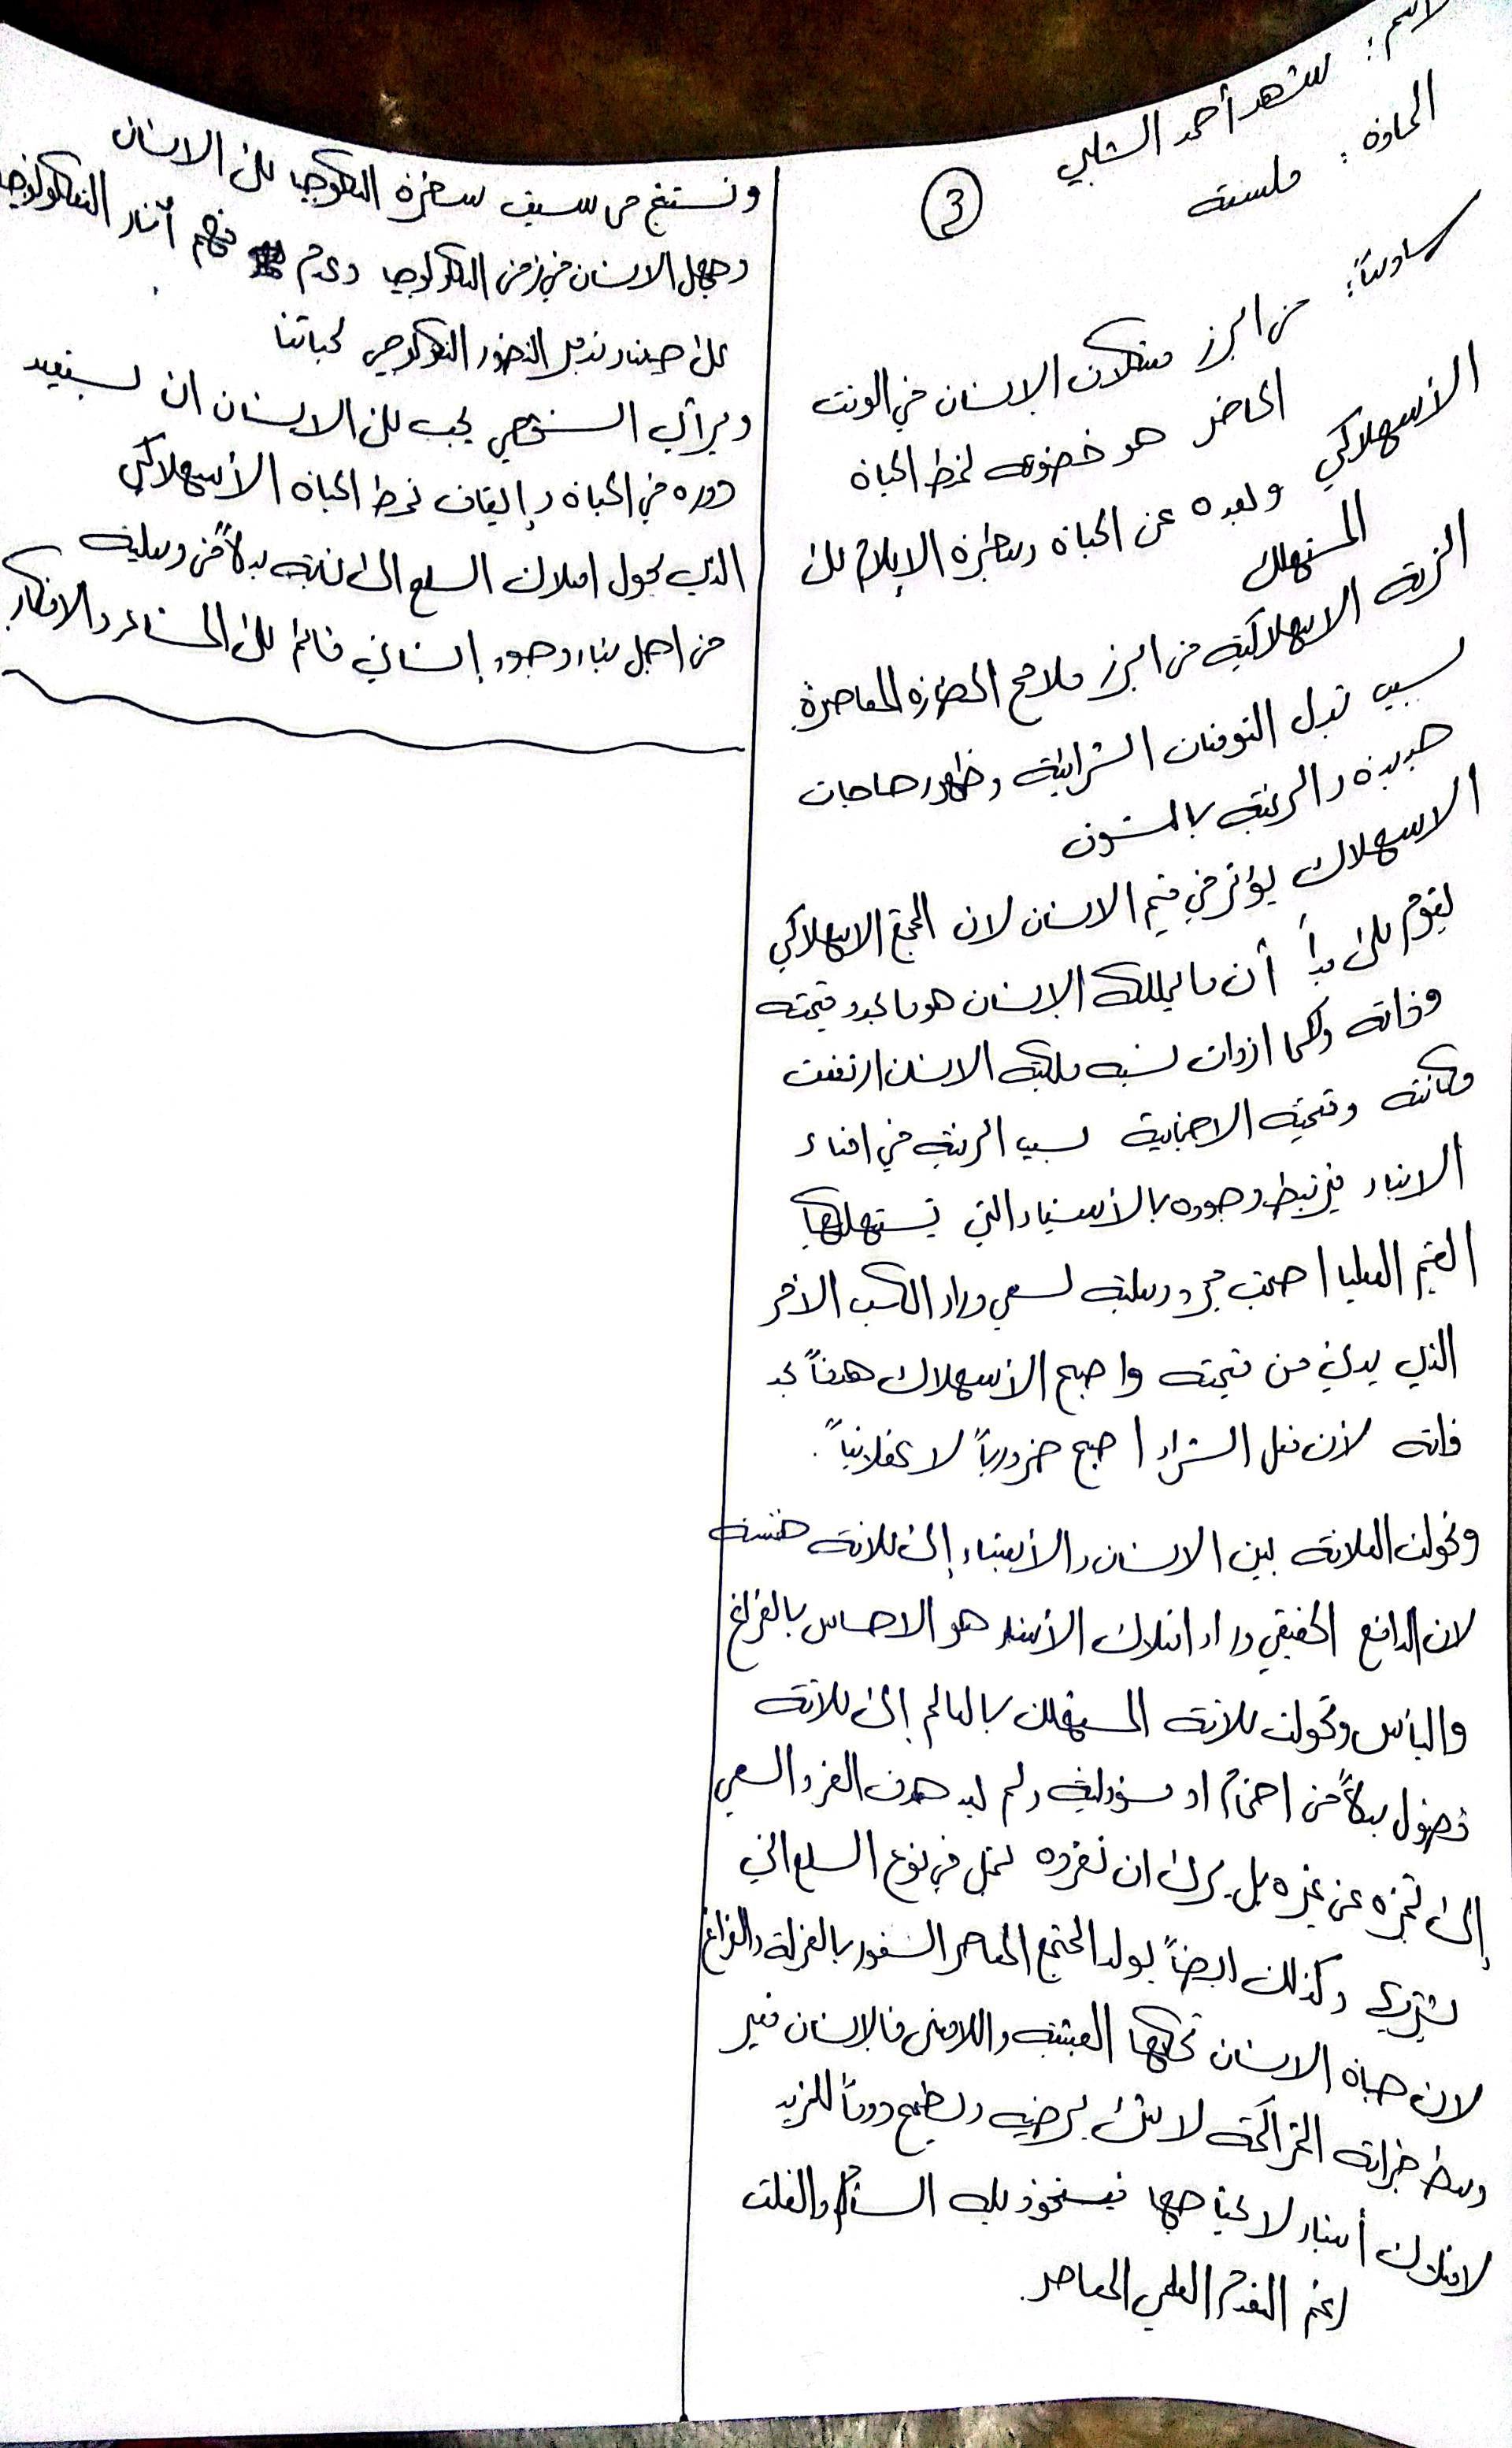 الاسم: شهد أحمد الشلبي
المادة: فلسفة
3
سادساً: من ابرز مشكلات الإنسان في الوقت
الحاضر هو خضوعه لنمط الحياة
الأستهلاكي وبعده عن الحياة وسيطرة الإعلام على
المستهلك
النزعة الاستهلاكية من ابرز ملامح الحضارة المعاصرة
بسبب تبدل التوقعات الشرائية وظهور حاجات
جديدة والرغبة بالتسوق
الاستهلاك يؤثر في قيم الانسان لان المجتمع الاستهلاكي
يقوم على مبدأ أن ما يملكه الإنسان هو ما يحدد قيمته
وذاته وكلما ازدادت نسبة ملكية الانسان ارتفعت
مكانته وقيمته الاجتماعية بسبب الرغبة في اقتناء
الاشياء فيرتبط وجوده بالأشياء التي يستهلكها
القيم العليا اصبحت مجرد وسيلة لسعي وراء الكسب الاخر
الذي يدني من قيمته واصبح الأستهلاك هدفاً بحد
ذاته لأن فعل الشراء اصبح ضرورياً لا عقلانياً.
وتحولت العلاقة بين الانسان والأشياء إلى علاقة
لان الدافع الحقيقي وراء امتلاك الأشياء هو الاحساس بالفراغ
واليأس وتحولت علاقة المستهلك بالعالم إلى علاقة
فضول بدلاً من احترام او مسؤولية ولم يعد هدف الفرد السعي
إلى تميزه عن غيره بل يرى ان تفرده تمثل في نوع السلع التي
يشتري وكذلك ايضاً يولد المجتمع المعاصر الشعور بالعزلة والفراغ
لان حياة الانسان تحكمها العبثية واللامعنى فالإنسان فقير
وسط خيراته المتراكمة لا شيء يرضيه ويطمح دوماً للمزيد
لامتلاك أشياء لا يحتاجها فيستحوذ عليه السأم والقلق
رغم التقدم العلمي المعاصر.
ونستنتج من سبب سيطرة التكنولوجيا على الانسان
وجهل الانسان في زمن التكنولوجيا وعدم فهم آثار التكنولوجيا
على حياتنا وتدخل التطور التكنولوجي لحياتنا
وبرأي الشخصي يجب على الانسان ان يستعيد
دوره في الحياة وإيقاف نمط الحياة الأستهلاكي
الذي يحول امتلاك السلع الى غاية بدلاً من وسيلة
من اجل بناء وجود إنساني قائم على المشاعر والافكار.